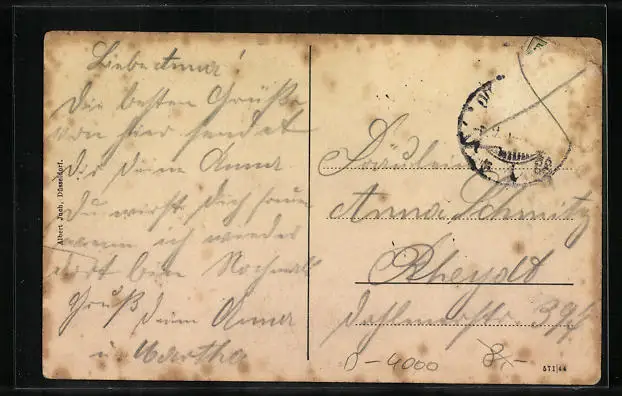 Liebe Anna!
Die besten Grüße
von hier sendet
Dir Deine Anna
Du wirst Dich freuen
wenn ich wieder
dort bin Nochmals
Gruß Deine Anna
u. Martha
Albert Jach, Düsseldorf.
Fräulein
Anna Schmitz
Rheydt
Dahlenerstr.
D-4000
8,-
571|44